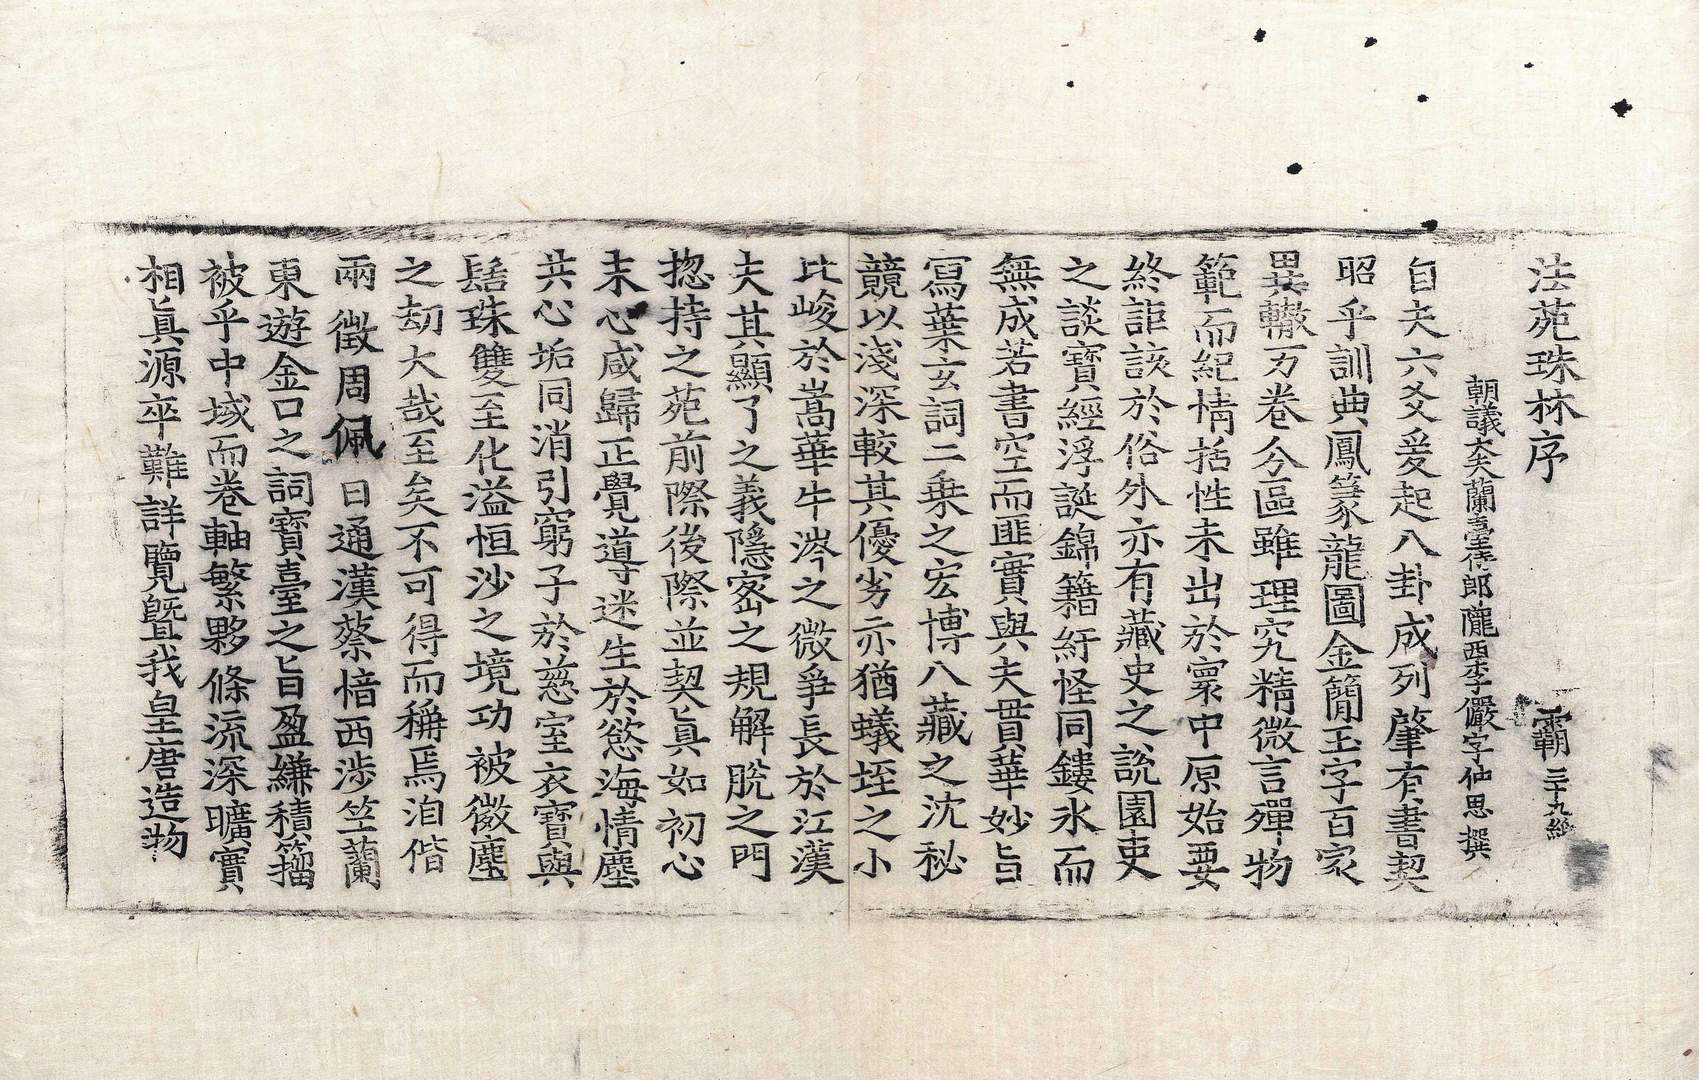 法苑珠林序
霸 三十九紙
朝議大夫蘭臺侍郎隴西李儼字仲思撰
自夫六爻爰起八卦成列肇有書契
昭乎訓典鳳篆龍圖金簡玉字百家
異轍万卷分區雖理究精微言殫物
範而紀情括性未出於寰中原始要
終詎該於俗外亦有藏史之說園吏
之談寶經浮誕錦籍紆怪同鏤氷而
無成若書空而匪實與夫貫華妙旨
寫葉玄詞二乗之宏博八藏之沈秘
競以淺深較其優劣亦猶蟻垤之小
比峻於嵩華牛涔之微爭長於江漢
夫其顯了之義隱密之規解脫之門
捴持之苑前際後際並契眞如初心
末心咸歸正覺導迷生於慾海情塵
共心垢同消引窮子於慈室衣寶與
髻珠雙至化溢恒沙之境功被微塵
之劫大哉至矣不可得而稱焉洎偕
兩徵周佩日通漢蔡愔西涉竺蘭
東遊金口之詞寶臺之旨盈縑積籀
被乎中域而卷軸繁夥條流深曠實
相眞源卒難詳覽暨我皇唐造物